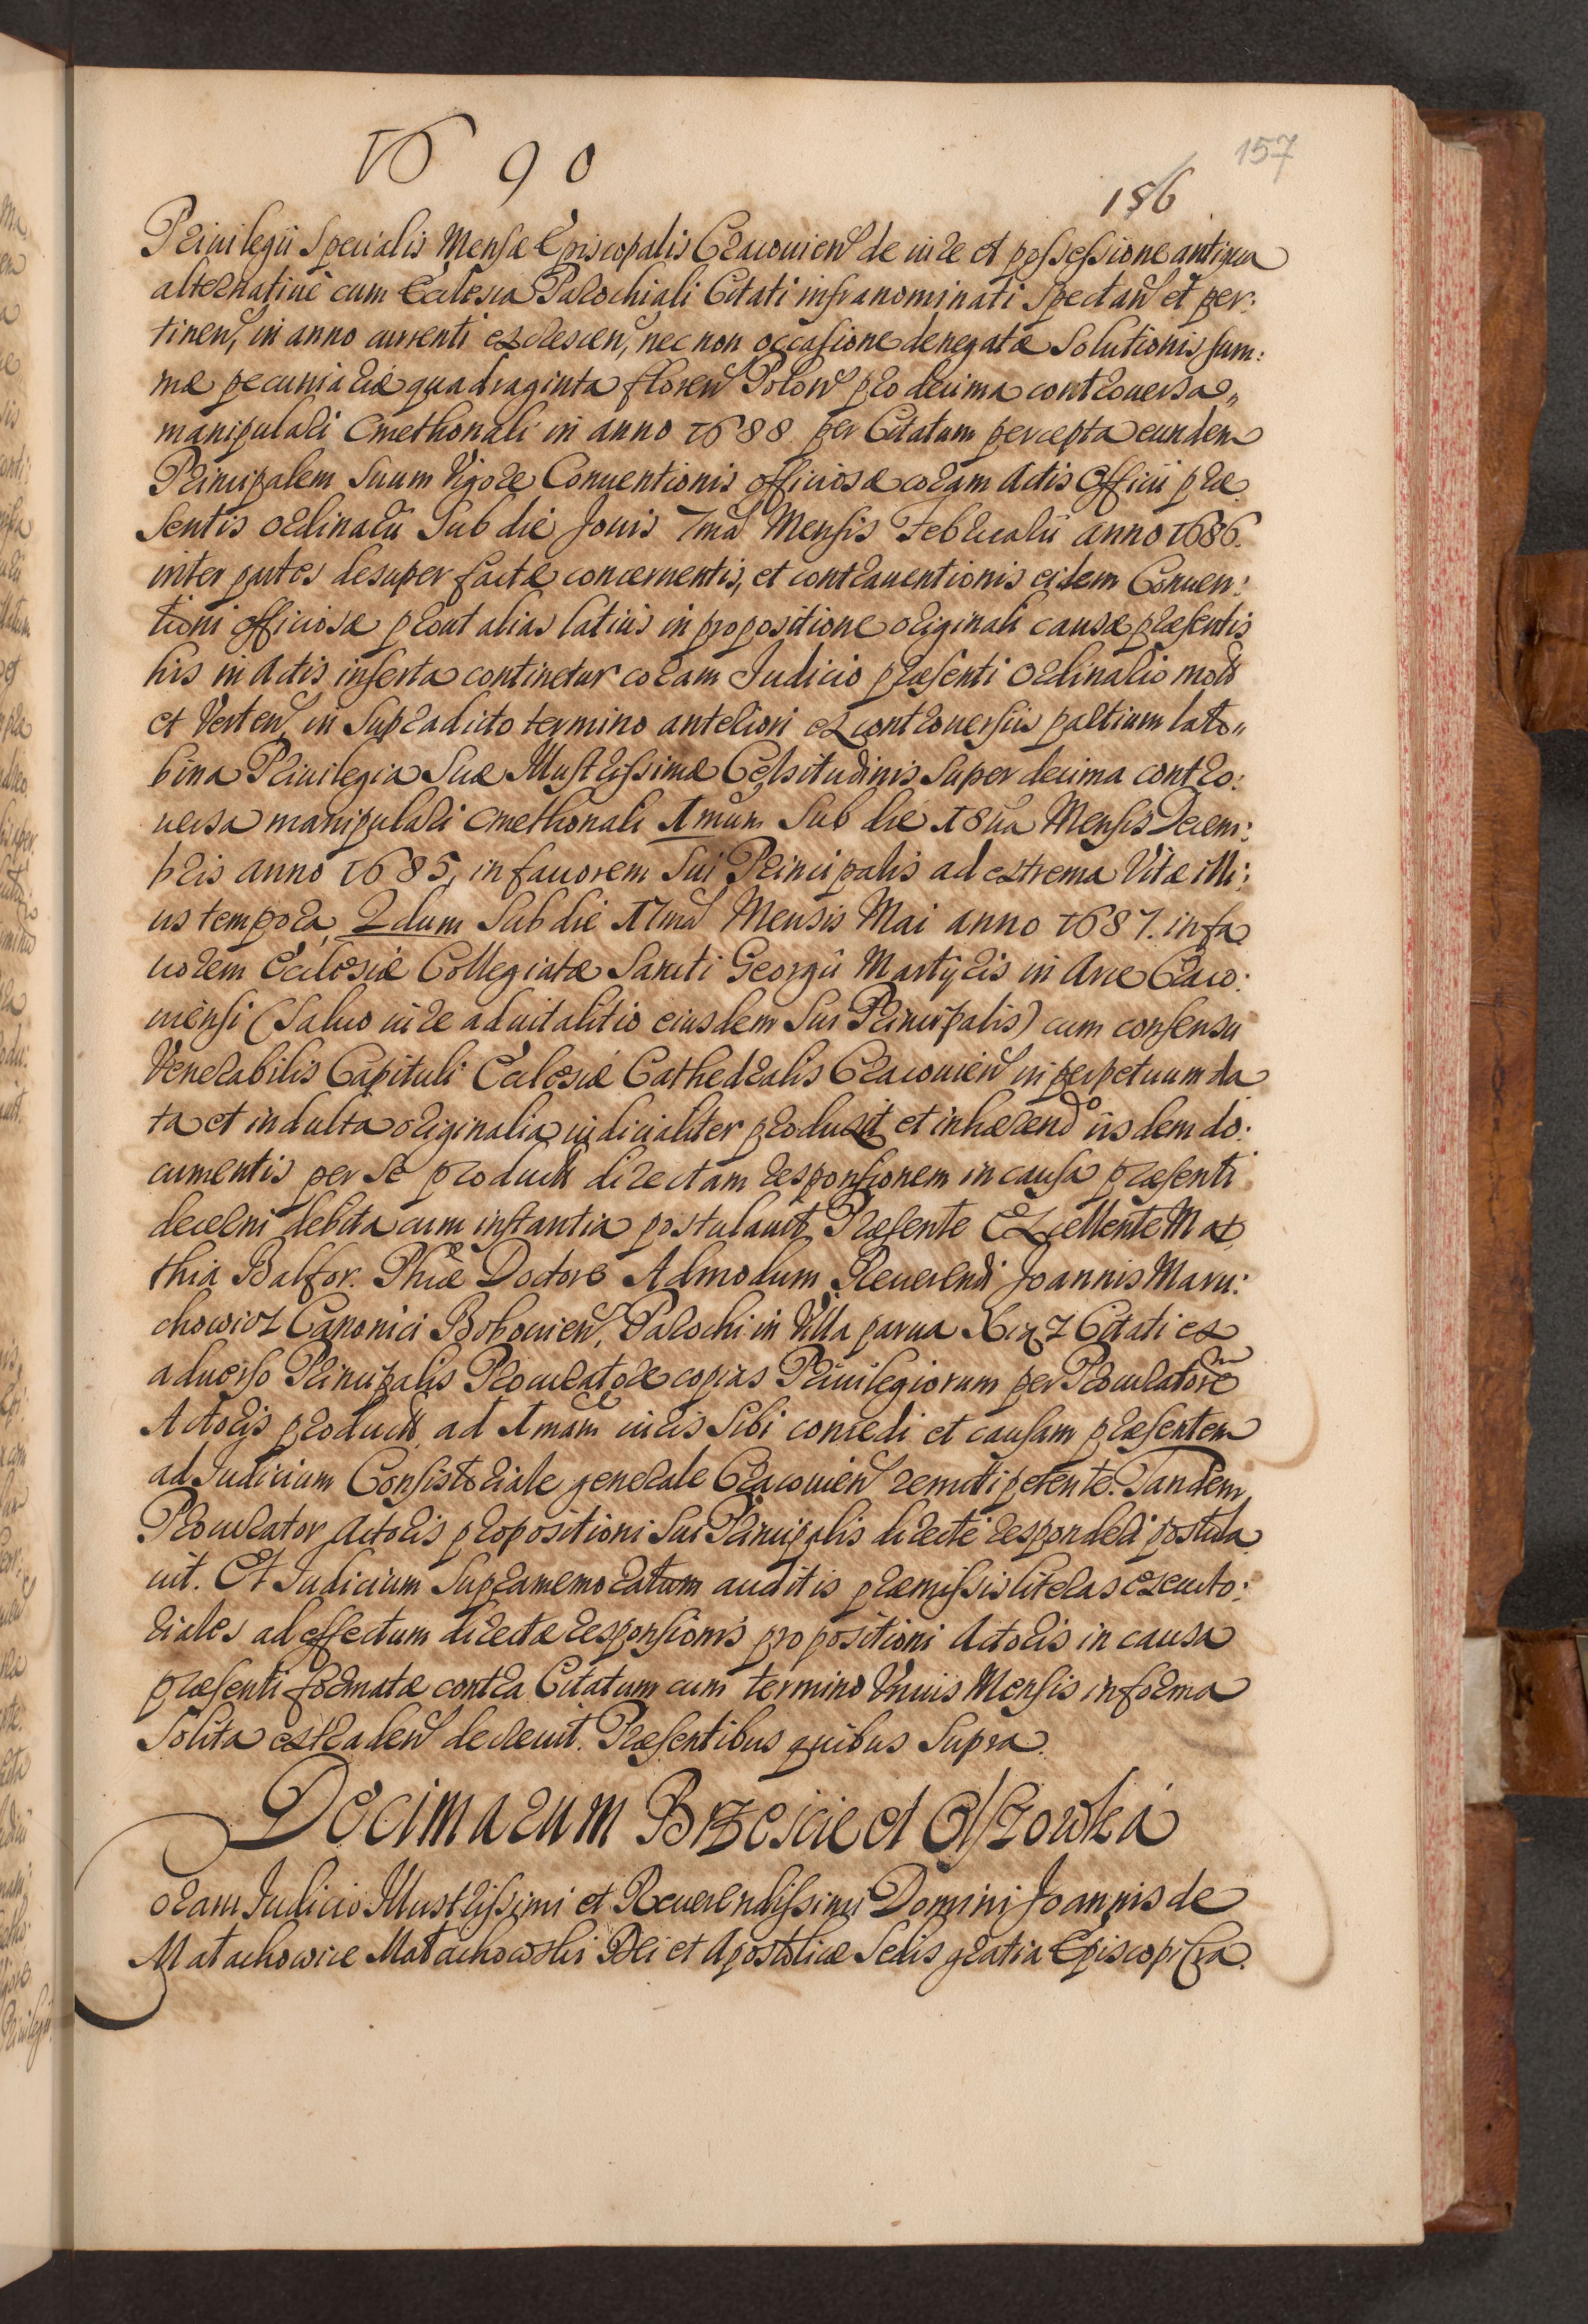 1690
157
186
Priuilegii Specialis Mensæ Episcopalis Cracouien̄ de iure et possessione antiqua
alternatiue cum Ecclesia Parochiali Citati infranominati Spectan̄ et per:
tinen̄, in anno currenti excrescen̄, nec non occasione denegatæ Solutionis sum:
mæ pecuniariæ quadraginta floren̄ Polon̄ pro decima controuersa„
manipulari Cmethonali in anno 1688 per Citatum percepta eundem
Principalem Suum Vigore Conuentionis officiosæ coram Actis Officii præ
sentis Ordinarii Sub die Jouis 7ma Mensis Februarii anno 1686.
inter partes desuper factæ concernentis, et contrauentionis eidem Conuen:
tioni officiosæ prout alias latius in propositione originali causæ præsentis
his in Actis inserta continetur coram Judicio præsenti Ordinario mot̄
et Verten̄, in Supradicto termino anteriori ex controuersiis partium lato„
bina Priuilegia Suæ Illustrissimæ Celsitudinis Super decima contro:
uersa manipulari cmethonali 1mum Sub die 18ua Mensis Decem:
bris anno 1685, in fauorem Sui Principalis ad extrema Vitæ illi:
us tempora, 2dum Sub die 17ma Mensis Mai anno 1687. in fa
uorem Ecclesiæ Collegiatæ Sancti Georgii Martyris in Arce Craco:
uiensi (Saluo iure aduitalitio eiusdem Sui Principalis) cum consensu
Venerabilis Capituli Ecclesiæ Cathedralis Cracouien̄ in perpetuum da
ta et indulta originalia iudicialiter produxit et inhærendo iisdem do:
cumentis per Se product̄ directam responsionem in causa præsenti
decerni debita cum instantia postulauit, Præsente Excellente Mat
thia Balfor. Phiæ Doctore Admodum Reuerendi Joannis Maru:
chowicz Canonici Bobouien̄, Parochi in Villa parua Xiąz Citati ex
aduerso Principalis Procuratore copias Priuilegiorum per Procuratorem
Actoris product̄, ad 1mam iuris Sibi concedi et causam præsentem
ad Judicium Consistoriale generale Cracouien̄ remitti petente. Tandem
Procurator Actoris propositioni Sui Principalis directe responderi postula
uit. Et Judicium Supramemoratum auditis præmissis literas executo:
riales ad effectum directæ responsionis propositioni Actoris in causa
præsenti formatæ contra Citatum cum termino Vnius Mensis in forma
Solita extraden̄ decreuit. Præsentibus quibus Supra.
Decimarum Brzescie et Olszowka
Coram Judicio Illustrissimi et Reuerendissimi Domini Joannis de
Małachowice Małachowski Dei et Apostolicæ Sedis gratia Episcopi Cra.